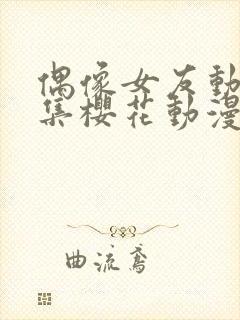 偶像女友動
集櫻花動漫
曲流鳶